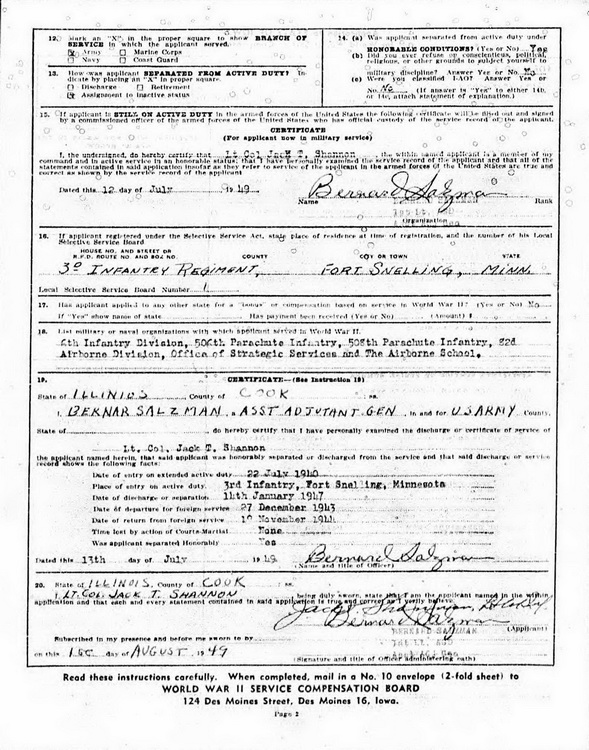 12. Mark an "X" in the proper square to show BRANCH OF
SERVICE in which the applicant served.
Army Marine Corps
Navy Coast Guard
13. How was applicant SEPARATED FROM ACTIVE DUTY? In-
dicate by placing an "X" in proper square.
Discharge Retirement
Assignment to inactive status
14. (a) Was applicant separated from active duty under
HONORABLE CONDITIONS? (Yes or No) Yes
(b) Did you ever refuse on conscientious, political,
religious, or other grounds to subject yourself to
military discipline? Answer Yes or No. No
(c) Were you classified 1-AO? Answer Yes or
No. No (If answer is "Yes" to either 14b,
or 14c, attach statement of explanation.)
15. If applicant is STILL ON ACTIVE DUTY in the armed forces of the United States the following certificate will be filled out and signed
by a commissioned officer of the armed forces of the United States who has official custody of the service record of the applicant.
CERTIFICATE
(For applicant now in military service)
I, the undersigned, do hereby certify that Lt Col Jack T. Shannon, the within named applicant is a member of my
command and in active service in an honorable status; that I have personally examined the service record of the applicant and that all of the
statements contained in said application insofar as they refer to service of the applicant in the armed forces of the United States are true and
correct as shown by the service record of the applicant
Dated this 12 day of July 1949 Bernard Salzman
Name Rank
Organization
16. If applicant registered under the Selective Service Act, state place of residence at time of registration, and the number of his Local
Selective Service Board
HOUSE NO. AND STREET OR
R.F.D. ROUTE NO. AND BOX NO. COUNTY CITY OR TOWN STATE
3D INFANTRY REGIMENT, FORT SNELLING, MINN.
Local Selective Service Board Number
17. Has applicant applied to any other state for a "bonus" or compensation based on service in World War II? (Yes or No) No
If "Yes" show name of state Has payment been received (Yes or No) (Amount) $
18. List military or naval organizations with which applicant served in World War II.
6th Infantry Division, 506th Parachute Infantry, 508th Parachute Infantry, 82d
Airborne Division, Office of Strategic Services and The Airborne School.
19. CERTIFICATE—(See Instruction 19)
State of ILLINOIS, County of COOK ss.
I, BERNAR SALZMAN, a ASST ADJUTANT GEN in and for US ARMY County,
State of do hereby certify that I have personally examined the discharge or certificate of service of
Lt. Col. Jack T. Shannon
the applicant named herein, that said applicant was honorably separated or discharged from the service and that said discharge or service
record shows the following facts:
Date of entry on extended active duty 22 July 1940
Place of entry on active duty 3rd Infantry, Fort Snelling, Minnesota
Date of discharge or separation 14th January 1947
Date of departure for foreign service 27 December 1943
Date of return from foreign service November 1944
Time lost by action of Courts-Martial None
Was applicant separated Honorably Yes
Dated this 13th day of July 1949 Bernard Salzman
(Name and title of Officer)
20. State of ILLINOIS, County of COOK ss.
I, LT. COL. JACK T. SHANNON being duly sworn, state that I am the applicant named in the within
application and that each and every statement contained in said application is true and correct as I verily believe.
Jack T. Shannon
Bernard Salzman
(Applicant)
BERNARD SALZMAN
Subscribed in my presence and before me sworn to by
on this day of AUGUST, 1949
(Signature and title of Officer administering oath)
Read these instructions carefully. When completed, mail in a No. 10 envelope (2-fold sheet) to
WORLD WAR II SERVICE COMPENSATION BOARD
124 Des Moines Street, Des Moines 16, Iowa.
Page 2